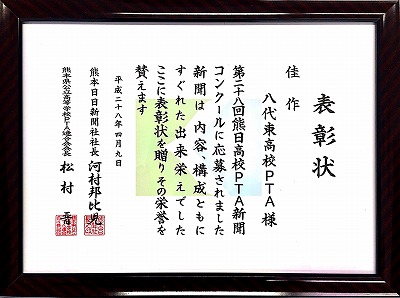 表彰状
佳作
八代東高校PTA様
第二十八回熊日高校PTA新聞
コンクールに応募されました
新聞は内容、構成ともに
すぐれた出来栄えでした
ここに表彰状を贈りその栄誉を
讃えます
平成二十八年四月九日
熊本日日新聞社社長 河村邦比児
熊本県公立高等学校PTA連合会会長 松村